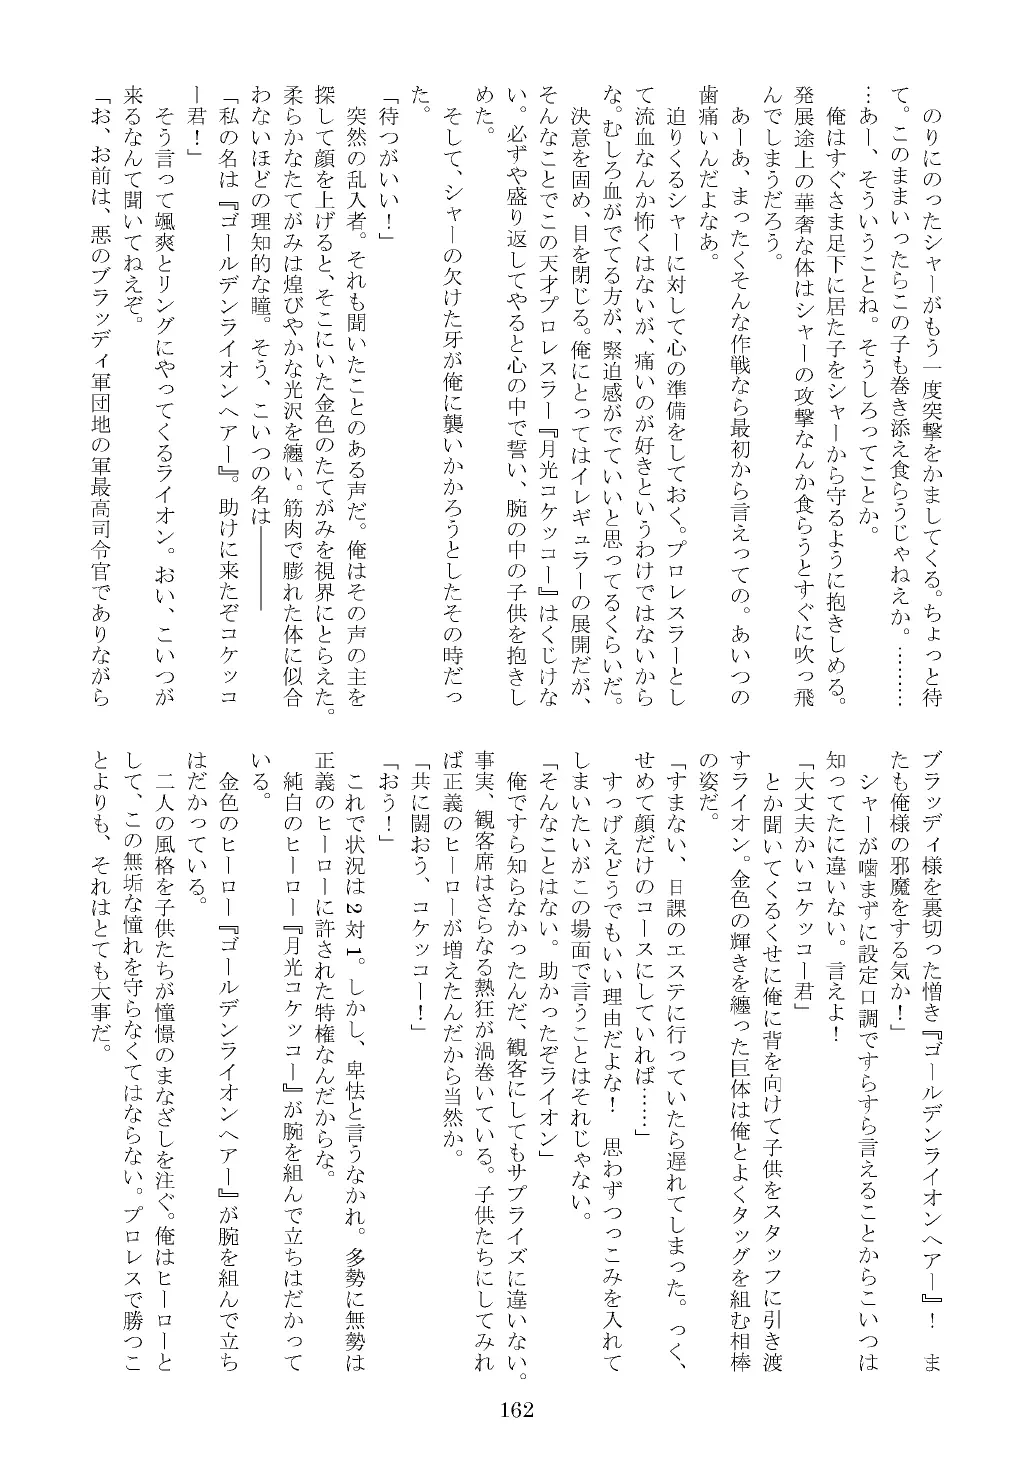 のりにのったシャーがもう一度突撃をかましてくる。ちょっと待
て。このままいったらこの子も巻き添え食らうじゃねえか。………
…あー、そういうことね。そうしろってことか。
俺はすぐさま足下に居た子をシャーから守るように抱きしめる。
発展途上の華奢な体はシャーの攻撃なんか食らうとすぐに吹っ飛
んでしまうだろう。
あーあ、まったくそんな作戦なら最初から言えっての。あいつの
歯痛いんだよなあ。
迫りくるシャーに対して心の準備をしておく。プロレスラーとし
て流血なんか怖くはないが、痛いのが好きというわけではないから
な。むしろ血がでてる方が、緊迫感がでていいと思ってるくらいだ。
決意を固め、目を閉じる。俺にとってはイレギュラーの展開だが、
そんなことでこの天才プロレスラー『月光コケッコー』はくじけな
い。必ずや盛り返してやると心の中で誓い、腕の中の子供を抱きし
めた。
そして、シャーの欠けた牙が俺に襲いかかろうとしたその時だっ
た。
「待つがいい！」
突然の乱入者。それも聞いたことのある声だ。俺はその声の主を
探して顔を上げると、そこにいた金色のたてがみを視界にとらえた。
柔らかなたてがみは煌びやかな光沢を纏い。筋肉で膨れた体に似合
わないほどの理知的な瞳。そう、こいつの名は――――
「私の名は『ゴールデンライオンヘアー』。助けに来たぞコケッコ
ー君！」
そう言って颯爽とリングにやってくるライオン。おい、こいつが
来るなんて聞いてねえぞ。
「お、お前は、悪のブラッディ軍団地の軍最高司令官でありながら
ブラッディ様を裏切った憎き『ゴールデンライオンヘアー』！　ま
たも俺様の邪魔をする気か！」
シャーが噛まずに設定口調ですらすら言えることからこいつは
知ってたに違いない。言えよ！
「大丈夫かいコケッコー君」
とか聞いてくるくせに俺に背を向けて子供をスタッフに引き渡
すライオン。金色の輝きを纏った巨体は俺とよくタッグを組む相棒
の姿だ。
「すまない、日課のエステに行っていたら遅れてしまった。っく、
せめて顔だけのコースにしていれば……」
すっげえどうでもいい理由だよな！　思わずつっこみを入れて
しまいたいがこの場面で言うことはそれじゃない。
「そんなことはない。助かったぞライオン」
俺ですら知らなかったんだ、観客にしてもサプライズに違いない。
事実、観客席はさらなる熱狂が渦巻いている。子供たちにしてみれ
ば正義のヒーローが増えたんだから当然か。
「共に闘おう、コケッコー！」
「おう！」
これで状況は2対1。しかし、卑怯と言うなかれ。多勢に無勢は
正義のヒーローに許された特権なんだからな。
純白のヒーロー『月光コケッコー』が腕を組んで立ちはだかって
いる。
金色のヒーロー『ゴールデンライオンヘアー』が腕を組んで立ち
はだかっている。
二人の風格を子供たちが憧憬のまなざしを注ぐ。俺はヒーローと
して、この無垢な憧れを守らなくてはならない。プロレスで勝つこ
とよりも、それはとても大事だ。
162